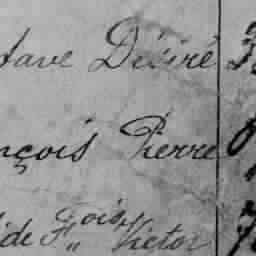 tave Désiré
nçois Pierre
ide Fois Victor